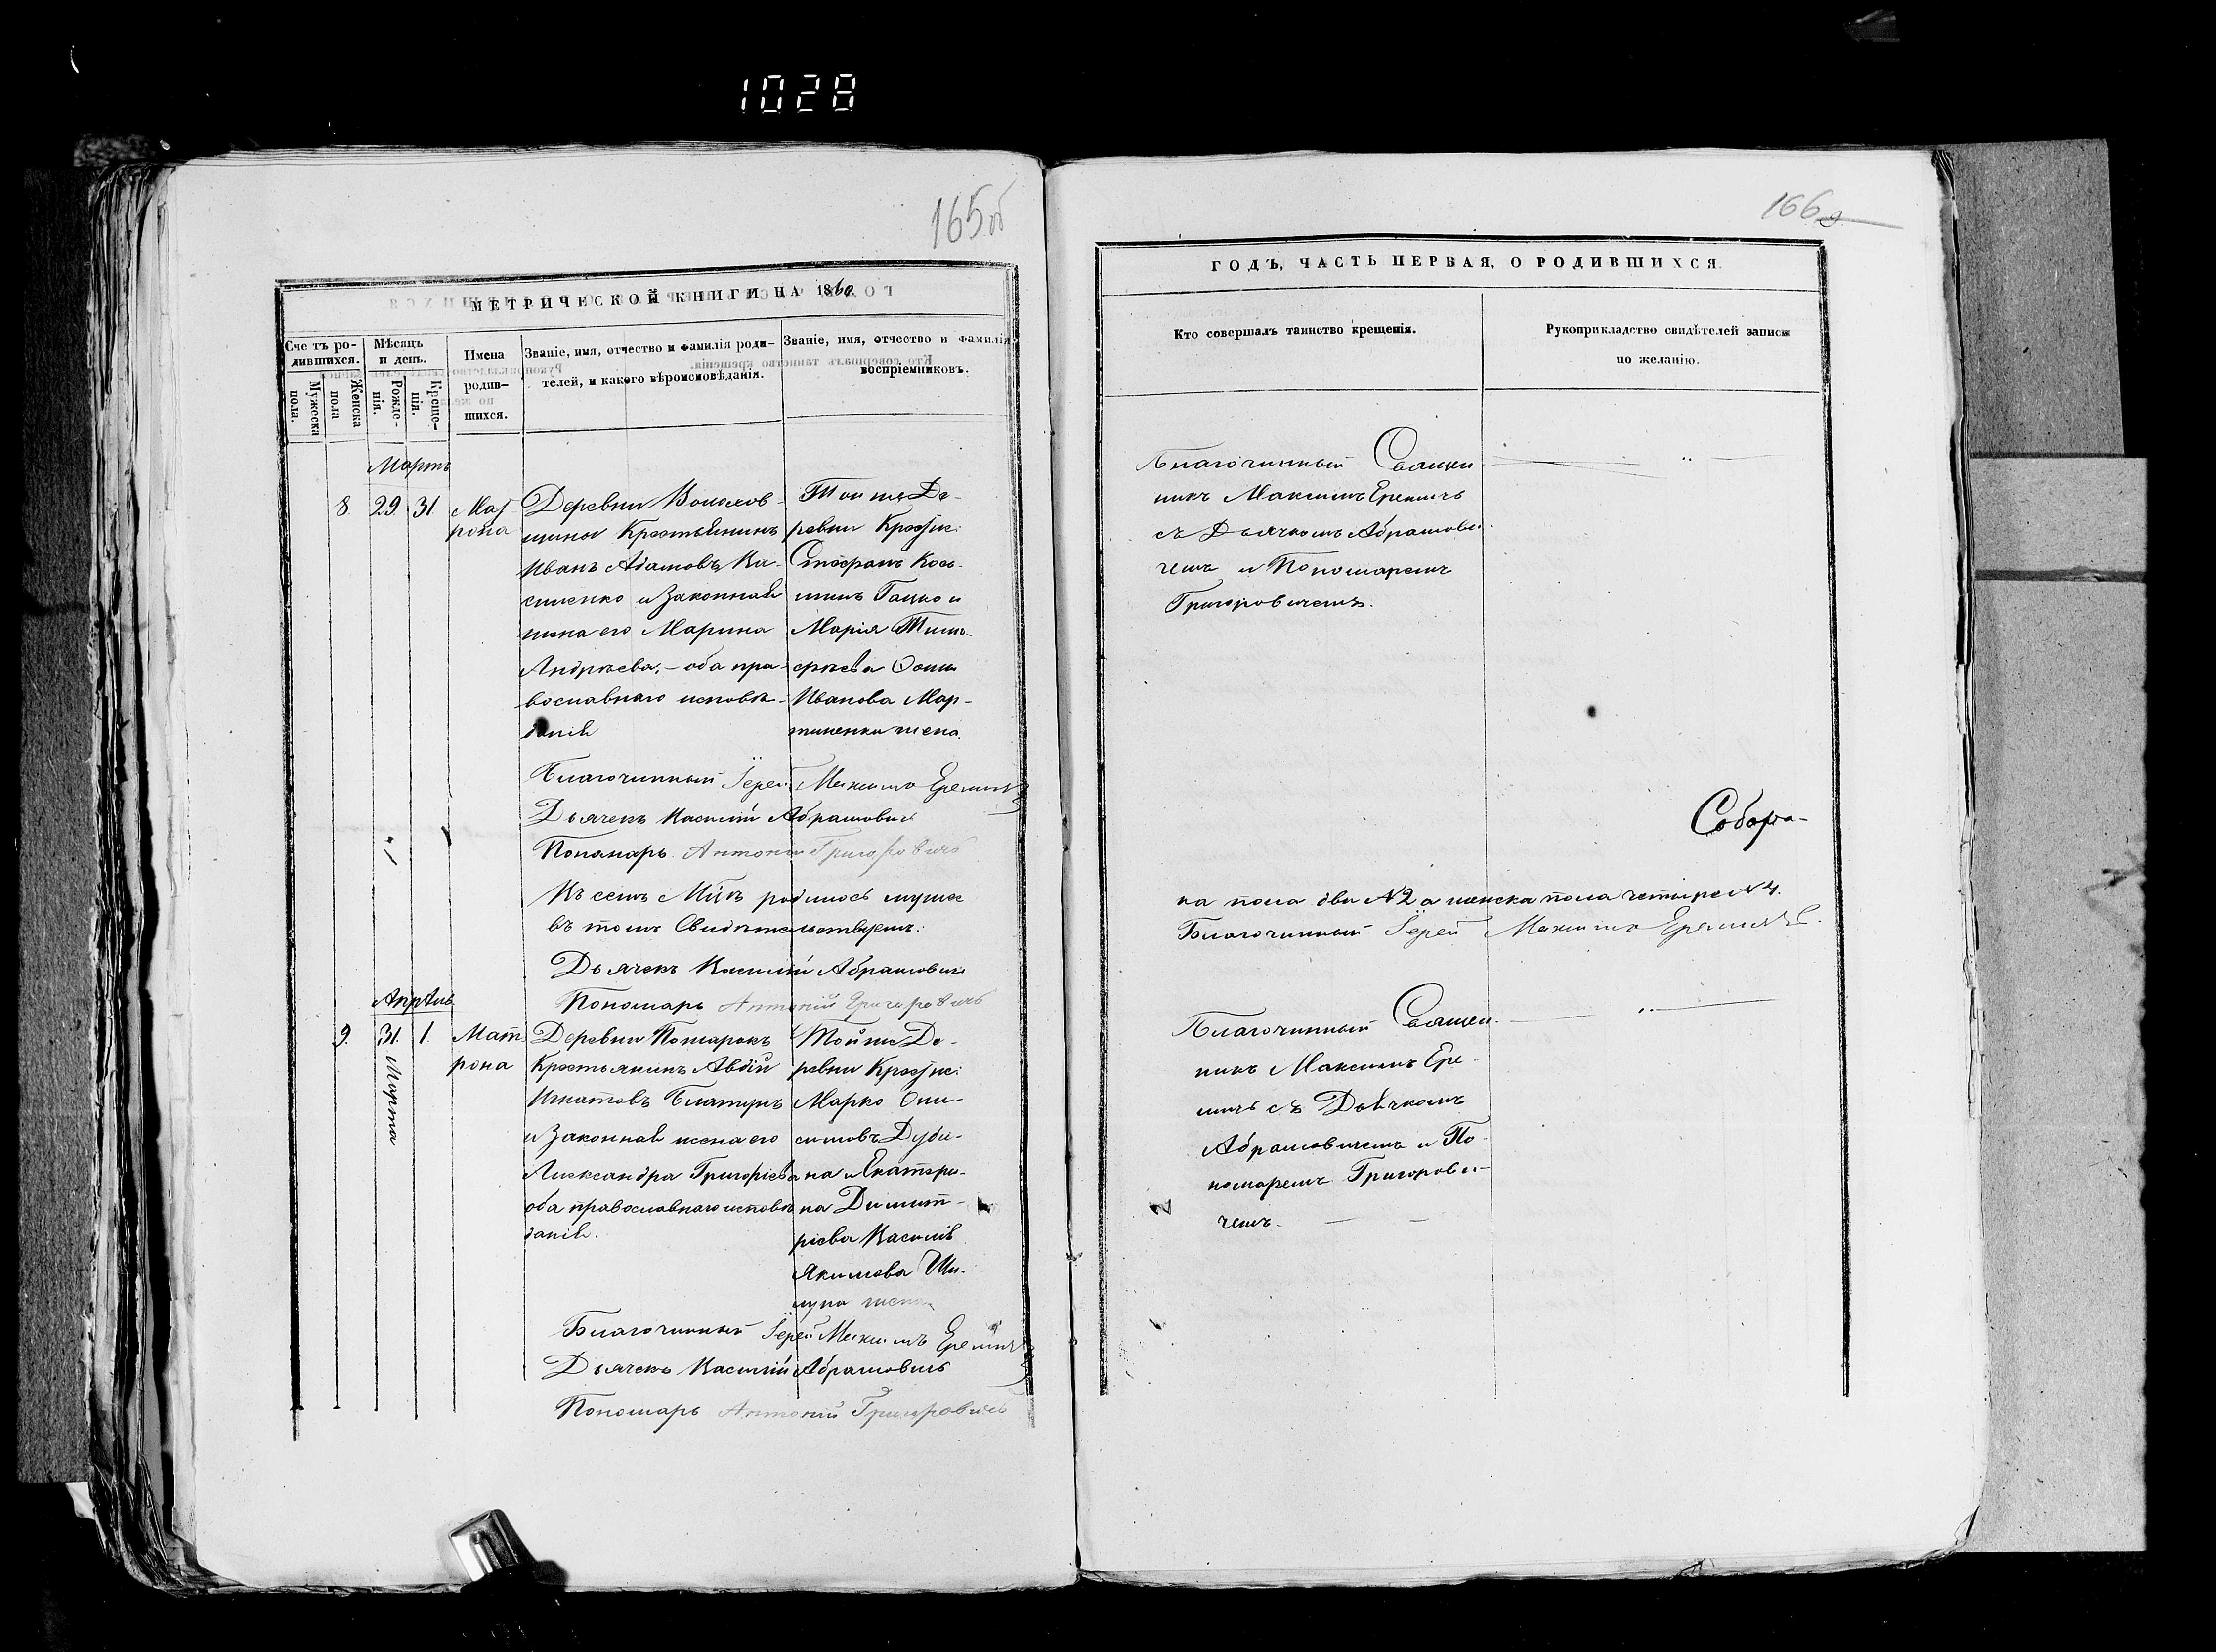 1028
165об
МЕТРИЧЕСКОЙ КНИГИ НА 1860
Счетъ ро-
дившихся.
Мужеска
пола.
Женска
пола
Мѣсяцъ
и день.
Рожде-
нія.
Креще-
нія.
Имена
родив-
шихся.
Званіе, имя, отчество и фамилія роди-
телей, и какого вѣроисповѣданія.
Званіе, имя, отчество и фамилія
воспріемниковъ.
Мартъ
8. 29. 31
Мат
рона
Деревни
щины Крестьянинъ
Иванъ Адамовъ
и Законная
жена его Марина
Андреева, – оба пра-
вославнаго исповѣ-
данія
Той же Де-
ревни Крест:
Стефанъ Козь-
минъ Гацко и
Марія Тимо-
феева
Иванова Мар-
тиненки жена.
Благочинный Іерей Максимъ Еремичъ
Дьячекъ Василій Абрамовичъ
Пономарь Антоній Григоровичъ
Въ семъ М-цѣ родилось мужес
въ томъ Свидѣтельствуемъ:
Дьячекъ Василій Абрамовичъ
Пономарь Антоній Григоровичъ
Апрѣль
9. 31. 1.
Марта
Мат
рона
Деревни Пожарокъ
Крестьянинъ Авдій
Игнатовъ
и Законная жена его
Александра Григорьева
оба православнаго исповѣ
данія.
Той же Де-
ревни Крест:
Марко Они-
симовъ Дуби-
на и Екатери-
на Димит-
ріева Василія
Якимова Ши-
жена
Благочинный Іерей Максимъ Еремичъ
Дьячекъ Василій Абрамовичъ
Пономарь Антоній Григоровичъ
166
ГОДЪ, ЧАСТЬ ПЕРВАЯ, О РОДИВШИХСЯ.
Кто совершалъ таинство крещенія.
Рукоприкладство свидѣтелей записи
по желанію.
Благочинный Священ
никъ Максимъ Еремичъ
съ Дьячкомъ Абрамови
чемъ и Пономаремъ
Григоровичемъ.
ка пола два №2 а женска пола четыре №4.
Благочинный Іерей Максимъ Еремичъ.
Благочинный Священ-
никъ Максимъ Ере-
мичъ съ Дьячкомъ
Абрамовичемъ и По-
номаремъ Григорови-
чемъ.